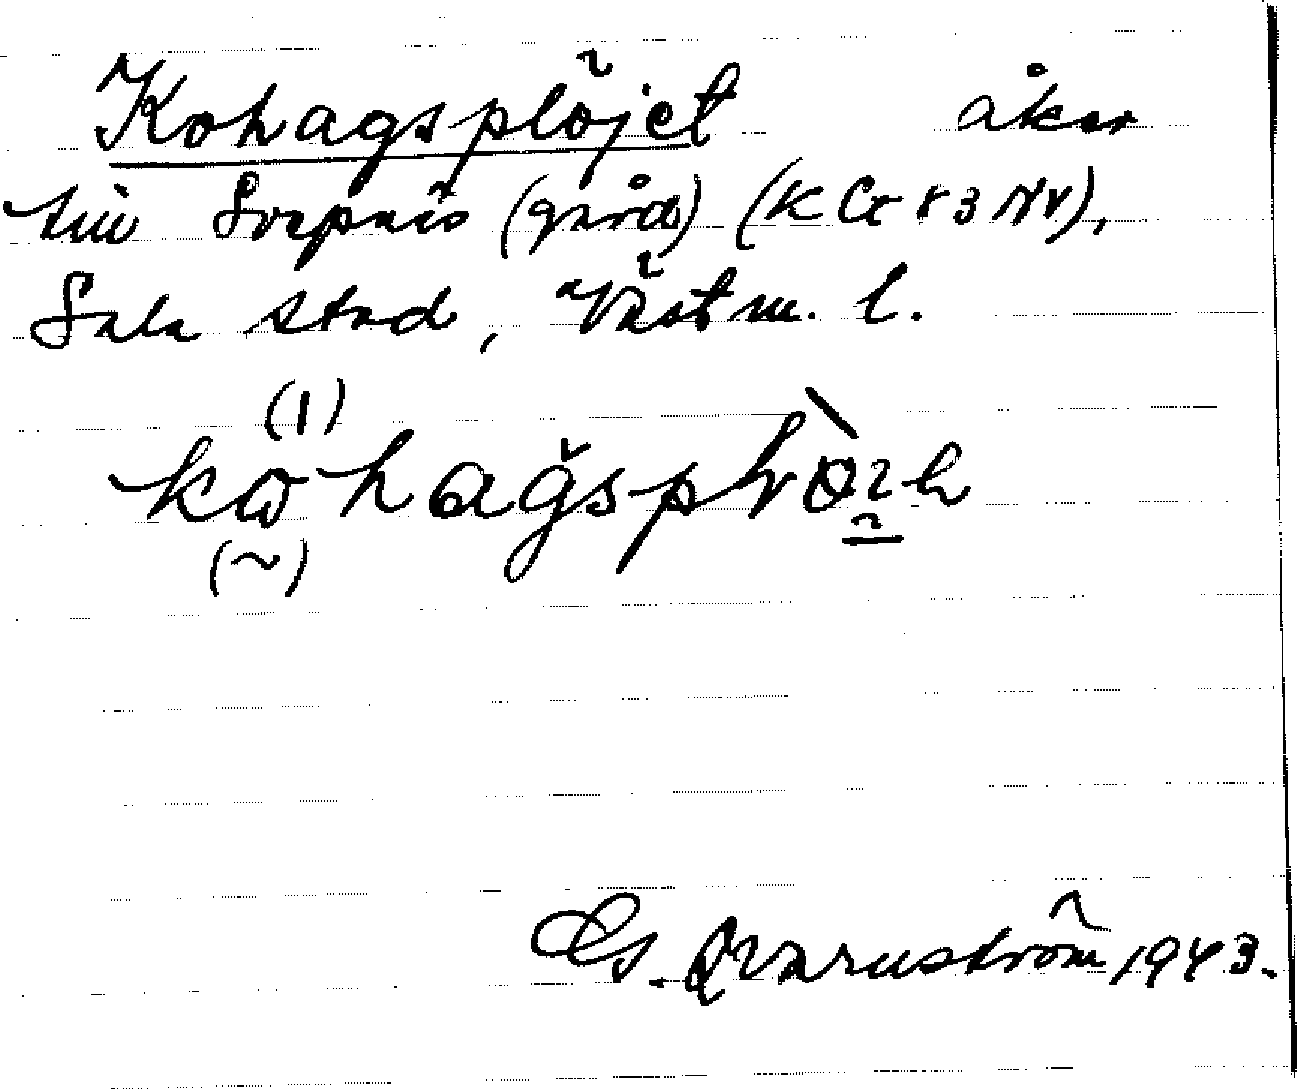 Kohagsplöjet åker
till Svepnäs (gård) (K Cr 83 NV),
Sala stad, Västm. l.
(ı)
kωhaǧsplòɿeh
(~)
Gs. Qvarnström 1943.